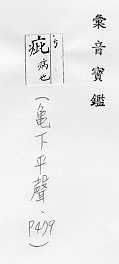 彙音寶鑑
疵
病也
(龜下平聲、P479)